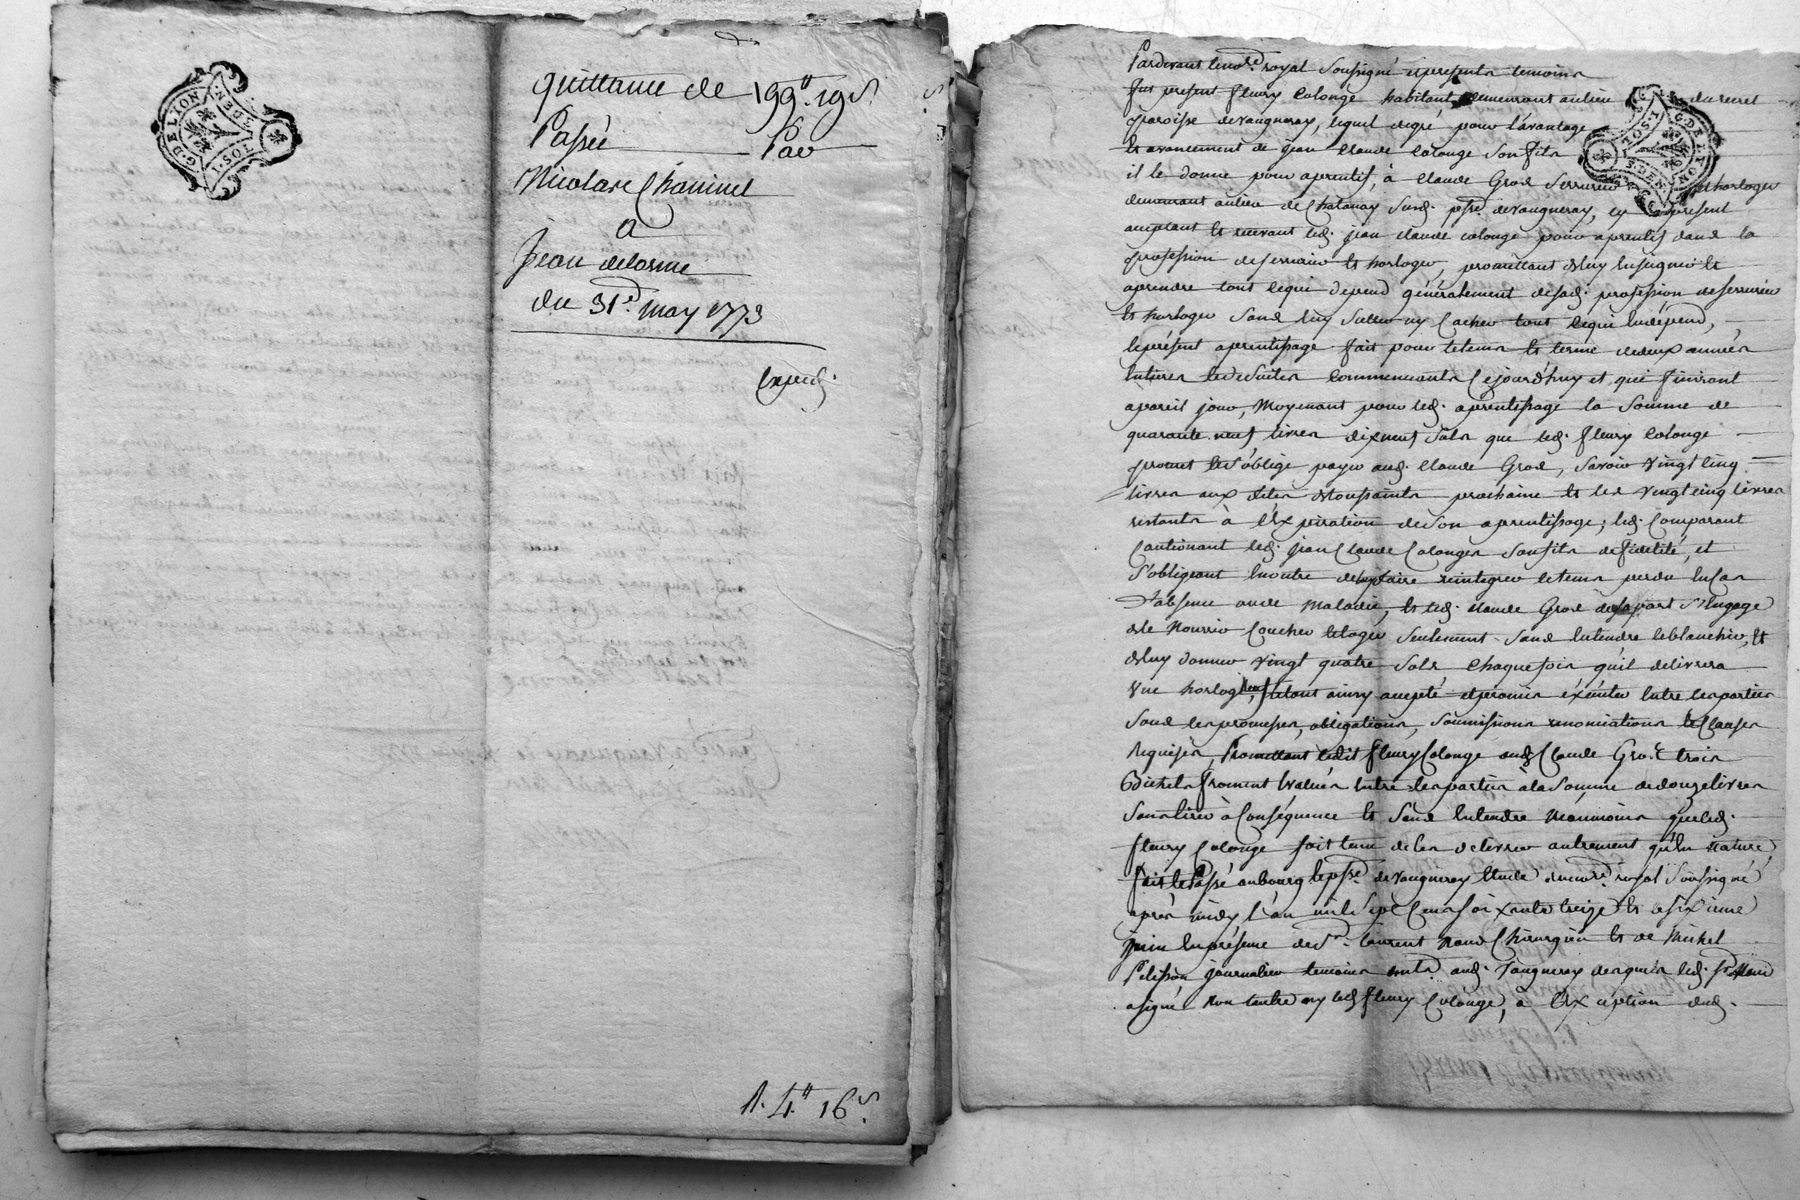 G. DE LION
1. SOL
DEN.
quittance de 199.ᵗᵗ 19ˢ
Passée Par
Nicolas Chauinel
a
Jean delorme
du 31.ᵉ may 1773
expedᵉ.
1. 4.ᵗᵗ 16ˢ
Pardevant le noʳᵉ royal soussigné et presents temoins
fut present fleury Colonge habitant demeurant au lieu
paroisse de vaugneray, lequel de gré pour l'avantage
et avancement de jean Claude Colonge son fils
il le donne pour aprentif, à Claude Gros Serrurier et horloger
demeurant au lieu de Chatanay susd. psse. de vaugneray, cy present
acceptant et recevant led. jean Claude Colonge pour aprentif dans la
profession de serrurier et horloger, promettant de luy enseigner et
aprendre tout ce qui depend généralement de sad. profession de serrurier
et horloger sans luy rien cacher tout ce qui en dépend,
le présent aprentissage fait pour le tems et terme de deux années
entieres et de suites commencants Cejourd'huy et qui finiront
apareil jour, Moyenant pour led. aprentissage la Somme de
quarante neuf livres dixneuf sols que led. fleury Colonge
promet et s'oblige payer aud. Claude Gros, savoir vingt cinq
livres aux fetes de toussaints prochaine et les vingt cinq livres
restants à l'Expiration de son aprentissage; led. Comparant
Cautionant led. jean Claude Colonges son fils de fidelité, et
s'obligeant en outre de luy faire reintegrer le tems perdu en cas
d'absence ou de maladie, et led. Claude Gros de sa part s'engage
de le Nourrir Coucher et loger seulement sans entendre le blanchir, et
de luy donner vingt quatre sols chaque fois qu'il delivrera
une horloge neuf, le tout ainsy accepté et promis éxécuter entre les parties
sous les promesses, obligations, soumissions renonciations et Clauses
requises, Promettant ledit fleury Colonge aud. Claude Gros trois
Bichets froment Evalués entre les parties à la somme de douze livres
sans tirer à Conséquence et sans entendre néanmoins que led.
fleury Colonge soit tenu de les delivrer autrement qu'En nature
fait et Passé au bourg et psse. de vaugneray Etude du noʳᵉ royal Soussigné
après midy l'an mil sept Cent soixante treize et le sixieme
juin En présence de sʳ. laurent Chirurgien et de Michel
Pelisson journalier temoins aud. Vaugneray desquels led. sʳ
a signé non l'autre ny led. fleury Colonge, à l'Exception dud.
G. DE LYON
1. SOL
DEN.